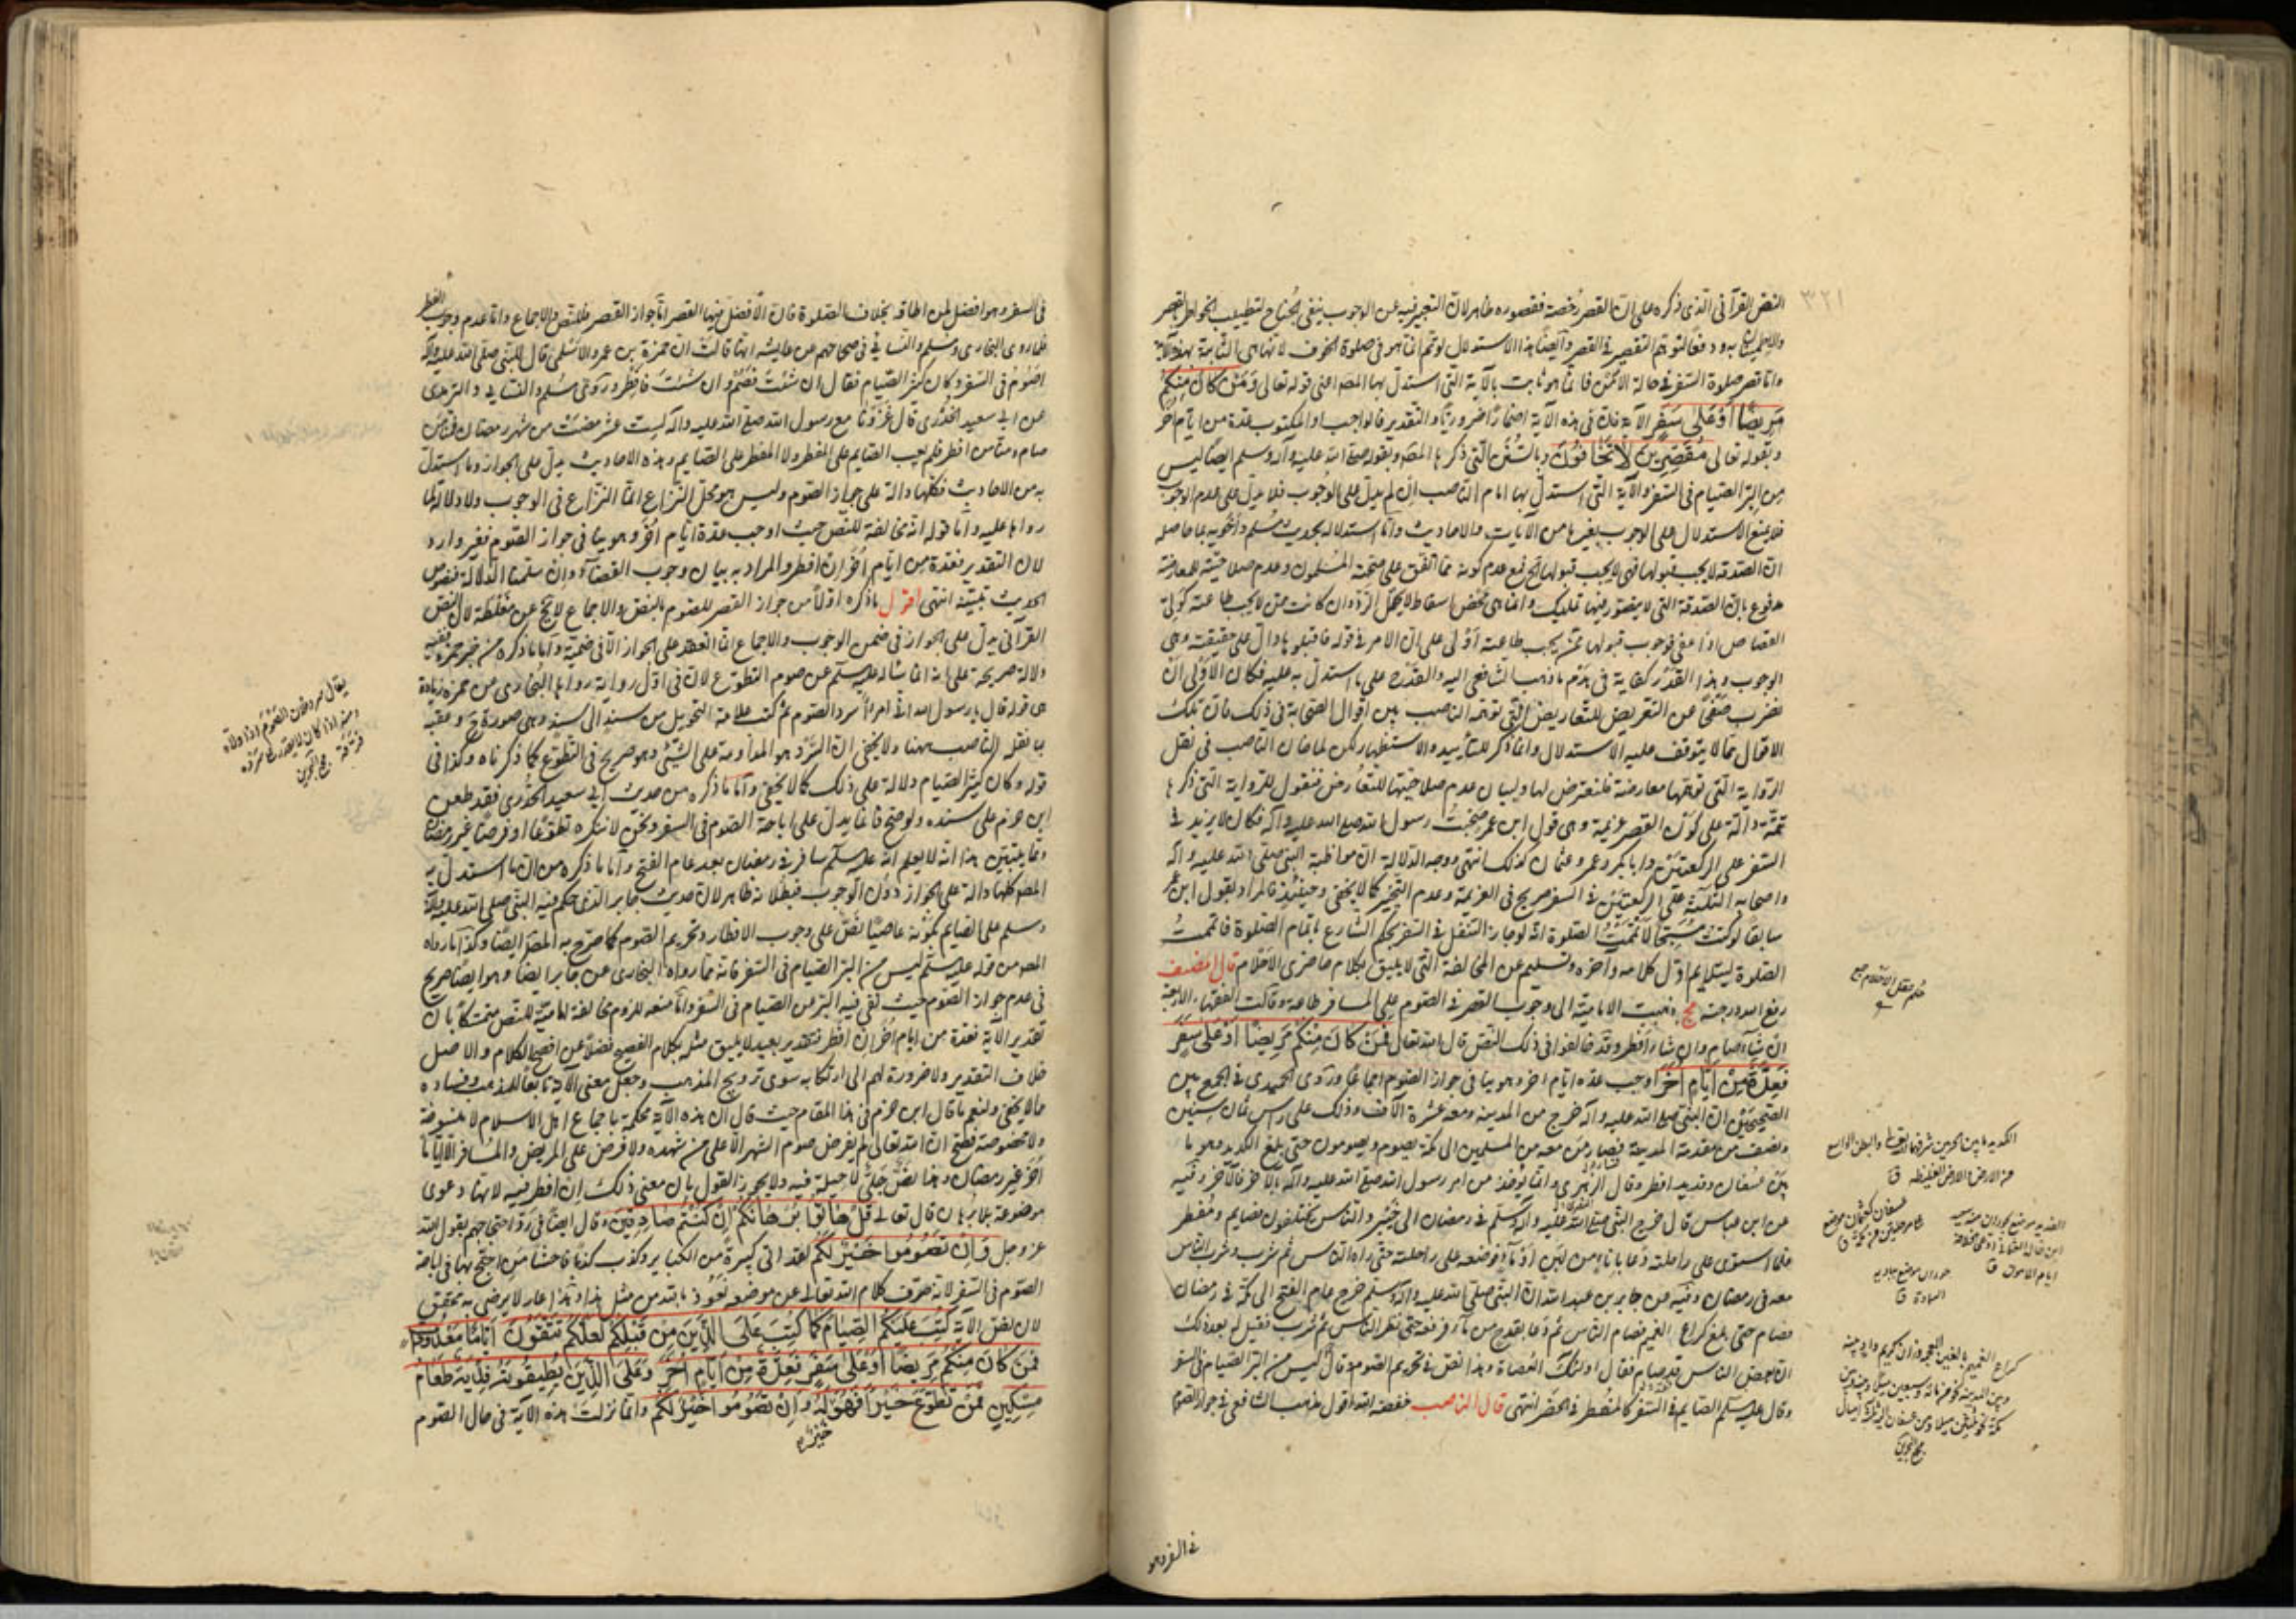 ٣٢١
النص القرآنى الذى ذكره على ان القصر رخصة فقصوره ظاهر لان التعبير فيه عن الوجوب بنفى الجناح لتطييب الخواطر بالقصر
ودفعا لتوهم التقصير فى القصر وايضا هذا الاستدلال لو تم انما هو فى صلوة الخوف لانها هى الثابتة بهذه الآية
واما قصر صلوة السفر فى حالة الامن فانما هو ثابت بالآية التى استدل بها المصه اعنى قوله تعالى وَمَنْ كَانَ مِنْكُمْ
مَرِيضًا أَوْ عَلَى سَفَرٍ الآية فان فى هذه الآية اضمارا ضروريا والتقدير فالواجب او المكتوب عدة من ايام أخر
وبقوله تعالى مُقَصِّرِينَ لَا تَخَافُونَ وبالسنن التى ذكرها المصه وبقوله صلى الله عليه وآله وسلم ايضا ليس
من البر الصيام فى السفر والآية التى استدل بها امام الناصب ان لم يدل على الوجوب فلا يدل على عدم الوجوب
فلا يمنع الاستدلال على الوجوب بغيرها من الآيات والاحاديث واما استدلاله بحديث مسلم
ان الصدقة لا يجب قبولها فهى لا يجب قبولها فمع عدم كونه مما اتفق على صحته المسلمون وعدم صلاحيته للمعارضة
مدفوع بان الصدقة التى لا يتصور فيها تمليك وانما هى محض اسقاط لا يحتمل الرد وان كانت ممن لا يجب طاعته كولى
القصاص اذا عفى فوجوب قبولها ممن يجب طاعته أولى على ان الامر فى قوله فاقبلوها دال على حقيقته وهى
الوجوب وهذا القدر كفاية فى هدم ما ذهب الشافعى اليه والقدح على ما استدل به عليه فكان الاولى ان
نضرب صفحا عن التعريض للتعاريض التى توهمه الناصب بين اقوال الصحابة فى ذلك فان تلك
الاقوال مما لا يتوقف عليه الاستدلال وانما ذكر للتأييد والاستظهار لكن لما خان الناصب فى نقل
الرواية التى توهمها معارضة فلنتعرض لها ولبيان عدم صلاحيتها للتعارض فنقول للرواية التى ذكرها
تتمة دالة على كون القصر عزيمة وهى قول ابن عمر صحبت رسول الله صلى الله عليه وآله فكان لا يزيد فى
السفر على الركعتين وابا بكر وعمر وعثمان كذلك انتهى ووجه الدلالة ان مواظبة النبى صلى الله عليه وآله
واصحابه الثلثة على الركعتين فى السفر صريح فى العزيمة وعدم التخيير كما لا يخفى وحينئذ فالمراد بقول ابن عمر
سابقا لو كنت مسبحا لأتممت الصلوة انه لو جاز التنفل فى السفر بحكم الشارع باتمام الصلوة فاتممت
الصلوة ليتلايم اول كلامه وآخره وتسليم عن المخالفة التى لا يليق بكلام حاضرى الاحلام قال المصنف
رفع الله درجته مج ذهبت الامامية الى وجوب القصر فى الصوم على المسافر طاعة وقالت الفقهاء الاربعة
ان شاء صام وان شاء افطر وقد خالفوا فى ذلك النص قال الله تعالى فَمَنْ كَانَ مِنْكُمْ مَرِيضًا أَوْ عَلَى سَفَرٍ
فَعِدَّةٌ مِنْ أَيَّامٍ أُخَرَ اوجب عدة ايام اخر وهو ينافى جواز الصوم اجماعا وروى الحميدى فى الجمع بين
الصحيحين ان النبى صلى الله عليه وآله خرج من المدينة ومعه عشرة آلاف وذلك على رأس ثمان سنين
ونصف من مقدمه المدينة فصار ومن معه من المسلمين الى مكة يصوم ويصومون حتى بلغ الكديد وهو ما
بين عسفان وقديد افطر وقال الزهرى وانما يؤخذ من امر رسول الله صلى الله عليه وآله بالآخر فالآخر وفيه
عن ابن عباس قال خرج النبى صلى الله عليه وآله وسلم فى رمضان الى خيبر والناس مختلفون فصايم ومفطر
فلما استوى على راحلته دعا باناء من لبن او ماء فوضعه على راحلته حتى رآه الناس ثم شرب وشرب الناس
معه فى رمضان وفيه عن جابر بن عبد الله ان النبى صلى الله عليه وآله وسلم خرج عام الفتح الى مكة فى رمضان
فصام حتى بلغ كراع الغميم فصام الناس ثم دعا بقدح من ماء فرفعه حتى نظر الناس ثم شرب فقيل له بعد ذلك
ان بعض الناس قد صام فقال اولئك العصاة وهذا نص فى تحريم الصوم وقال ليس من البر الصيام فى السفر
وقال عليه السلم الصايم فى السفر كالمفطر فى الحضر انتهى قال الناصب خفضه الله اقول مذهب الشافعى فى جواز الصوم
فى السفر وهو
مجمع البحرين
فى السفر وهو افضل لمن اطاقه بخلاف الصلوة فان الافضل فيها القصر اما جواز القصر فللنص والاجماع واما عدم وجوب الفطر
فلما روى البخارى ومسلم والنسائى فى صحاحهم عن عايشه انها قالت ان حمزة بن عمرو الاسلمى قال للنبى صلى الله عليه وآله
اصوم فى السفر وكان كثير الصيام فقال ان شئت فصم وان شئت فافطر وروى مسلم والنسائى والترمذى
عن ابى سعيد الخدرى قال غزونا مع رسول الله صلى الله عليه وآله لست عشر مضت من شهر رمضان فمنا من
صام ومنا من افطر فلم يعب الصايم على المفطر ولا المفطر على الصايم وهذه الاحاديث يدل على الجواز وما استدل
به من الاحاديث فكلها دالة على جواز الصوم وليس هو محل النزاع انما النزاع فى الوجوب ولا دلالة لما
رواها عليه واما قوله انه مخالفة للنص حيث اوجب عدة ايام أخر وهو ينافى جواز الصوم فغير وارد
لان التقدير فعدة من ايام أخر ان افطر والمراد به بيان وجوب القضاء وان سلمنا الدلالة فنصوص
الحديث تبينه انتهى اقول ما ذكره اولا من جواز القصر للصوم بالنص والاجماع لا يخ عن مغلطة لان النص
القرآنى يدل على الجواز فى ضمن الوجوب والاجماع انما انعقد على الجواز الا فى ضمنه واما ما ذكره من خبر حمزة ففيه
دلالة صريحة على انه انما سأله عليه السلم عن صوم التطوع لان فى اول رواية رواها البخارى عن حمزة زيادة
هى قوله قال يا رسول الله انى امرأ اسرد الصوم ثم كتب علامة التحويل من سند الى سند وهى صورة ح وعقبه
بما نقله الناصب ههنا ولا يخفى ان السرد هو المداومة على الشئ وهو صريح فى التطوع كما ذكرناه وكذا فى
قوله وكان كثير الصيام دلالة على ذلك كما لا يخفى واما ما ذكره من حديث ابى سعيد الخدرى فقد طعن
ابن حزم على سنده ولو صح فانما يدل على اباحة الصوم فى السفر ونحن لا ننكره تطوعا او فرضا غير رمضان
ومما يبين هذا انه لا يعلم انه عليه السلم سافر فى رمضان بعد عام الفتح واما ما ذكره من ان ما استدل به
المصه كلها دالة على الجواز دون الوجوب فبطلانه ظاهر لان حديث جابر الذى حكم فيه النبى صلى الله عليه وآله
وسلم على الصايم بكونه عاصيا نص على وجوب الافطار وتحريم الصوم كما صرح به المصه ايضا وكذا ما رواه
المصه من قوله عليه السلم ليس من البر الصيام فى السفر فانه مما رواه البخارى عن جابر ايضا وهو ايضا صريح
فى عدم جواز الصوم حيث نفى فيه البر عن الصيام فى السفر واما منعه للزوم مخالفة امامية للنص متمسكا بان
تقدير الآية فعدة من ايام أخر ان افطر فتقدير بعيد لا يليق مثله بكلام الفصيح فضلا عن افصح الكلام والاصل
خلاف التقدير ولا ضرورة لهم الى ارتكابه سوى ترويج المذهب وجعل معنى الآية تابعا للمذهب وفساده
مما لا يخفى ولنعم ما قال ابن حزم فى هذا المقام حيث قال ان هذه الآية محكمة باجماع اهل الاسلام لا منسوخة
ولا مخصوصة فصح ان الله تعالى لم يفرض صوم الشهر الا على من شهده ولا فرض على المريض والمسافر الا اياما
أخر غير رمضان وهذا نص جلى لا حيلة فيه ولا يجوز القول بان معنى ذلك ان افطر فيه لانها دعوى
موضوعة بلا برهان قال تعالى قُلْ هَاتُوا بُرْهَانَكُمْ إِنْ كُنْتُمْ صَادِقِينَ وقال ايضا فى رد احتجاجهم بقول الله
عز وجل وَأَنْ تَصُومُوا خَيْرٌ لَكُمْ لقد اتى كبيرة من الكباير وكذب كذبا فاحشا من احتج بها فى اباحة
الصوم فى السفر لانه حرف كلام الله تعالى عن موضعه نعوذ بالله من مثل هذا وهذا عار لا يرضى به محقق
لان نص الآية كُتِبَ عَلَيْكُمُ الصِّيَامُ كَمَا كُتِبَ عَلَى الَّذِينَ مِنْ قَبْلِكُمْ لَعَلَّكُمْ تَتَّقُونَ أَيَّامًا مَعْدُودَاتٍ
فَمَنْ كَانَ مِنْكُمْ مَرِيضًا أَوْ عَلَى سَفَرٍ فَعِدَّةٌ مِنْ أَيَّامٍ أُخَرَ وَعَلَى الَّذِينَ يُطِيقُونَهُ فِدْيَةٌ طَعَامُ
مِسْكِينٍ فَمَنْ تَطَوَّعَ خَيْرًا فَهُوَ لَهُ وَأَنْ تَصُومُوا خَيْرٌ لَكُمْ وانما نزلت هذه الآية فى حال الصوم
خَيْرٌ